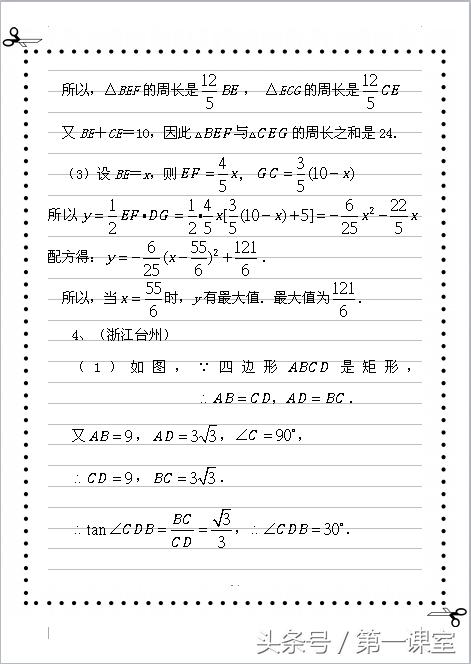 所以，△BEF的周长是12/5 BE， △ECG的周长是12/5 CE
又BE＋CE＝10，因此△BEF与△CEG的周长之和是24．
（3）设BE＝x，则EF＝4/5 x，GC＝3/5(10－x)
所以y＝1/2 EF•DG＝1/2•4/5 x[3/5(10－x)＋5]＝－6/25 x²－22/5 x
配方得：y＝－6/25(x－55/6)²＋121/6．
所以，当x＝55/6时，y有最大值．最大值为121/6．
4、（浙江台州）
（1）如图，∵四边形ABCD是矩形，
∴AB＝CD，AD＝BC．
又AB＝9，AD＝3√3，∠C＝90°，
∴CD＝9，BC＝3√3．
∴tan∠CDB＝BC/CD＝√3/3，∴∠CDB＝30°．
头条号／第一课室